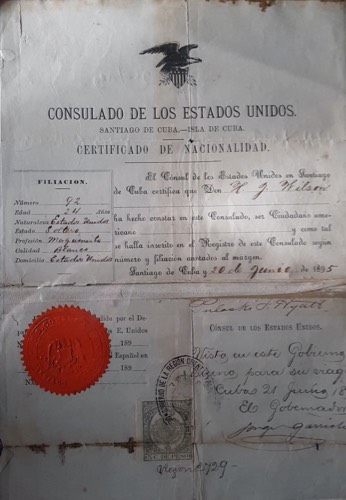 CONSULADO DE LOS ESTADOS UNIDOS.
SANTIAGO DE CUBA.—ISLA DE CUBA.
CERTIFICADO DE NACIONALIDAD.
FILIACION.
Número 92
Edad 24 años
Naturaleza Estados Unidos
Estado Soltero
Profesión Maquinista
Calidad Blanco
Domicilio Estados Unidos
El Cónsul de los Estados Unidos en Santiago
de Cuba certifica que Don H. J. Wilson
ha hecho constar en este Consulado, ser Ciudadano
americano y como tal
se halla inscrito en el Registro de este Consulado según
número y filiación anotados al margen.
Santiago de Cuba y 20 de Junio de 1895
Pulaski F. Hyatt
CÓNSUL DE LOS ESTADOS UNIDOS.
ido por el De
E. Unidos
189
Español en
189
Visto en este Gobierno
para su viaje
Cuba 21 Junio 18
El Gobernador